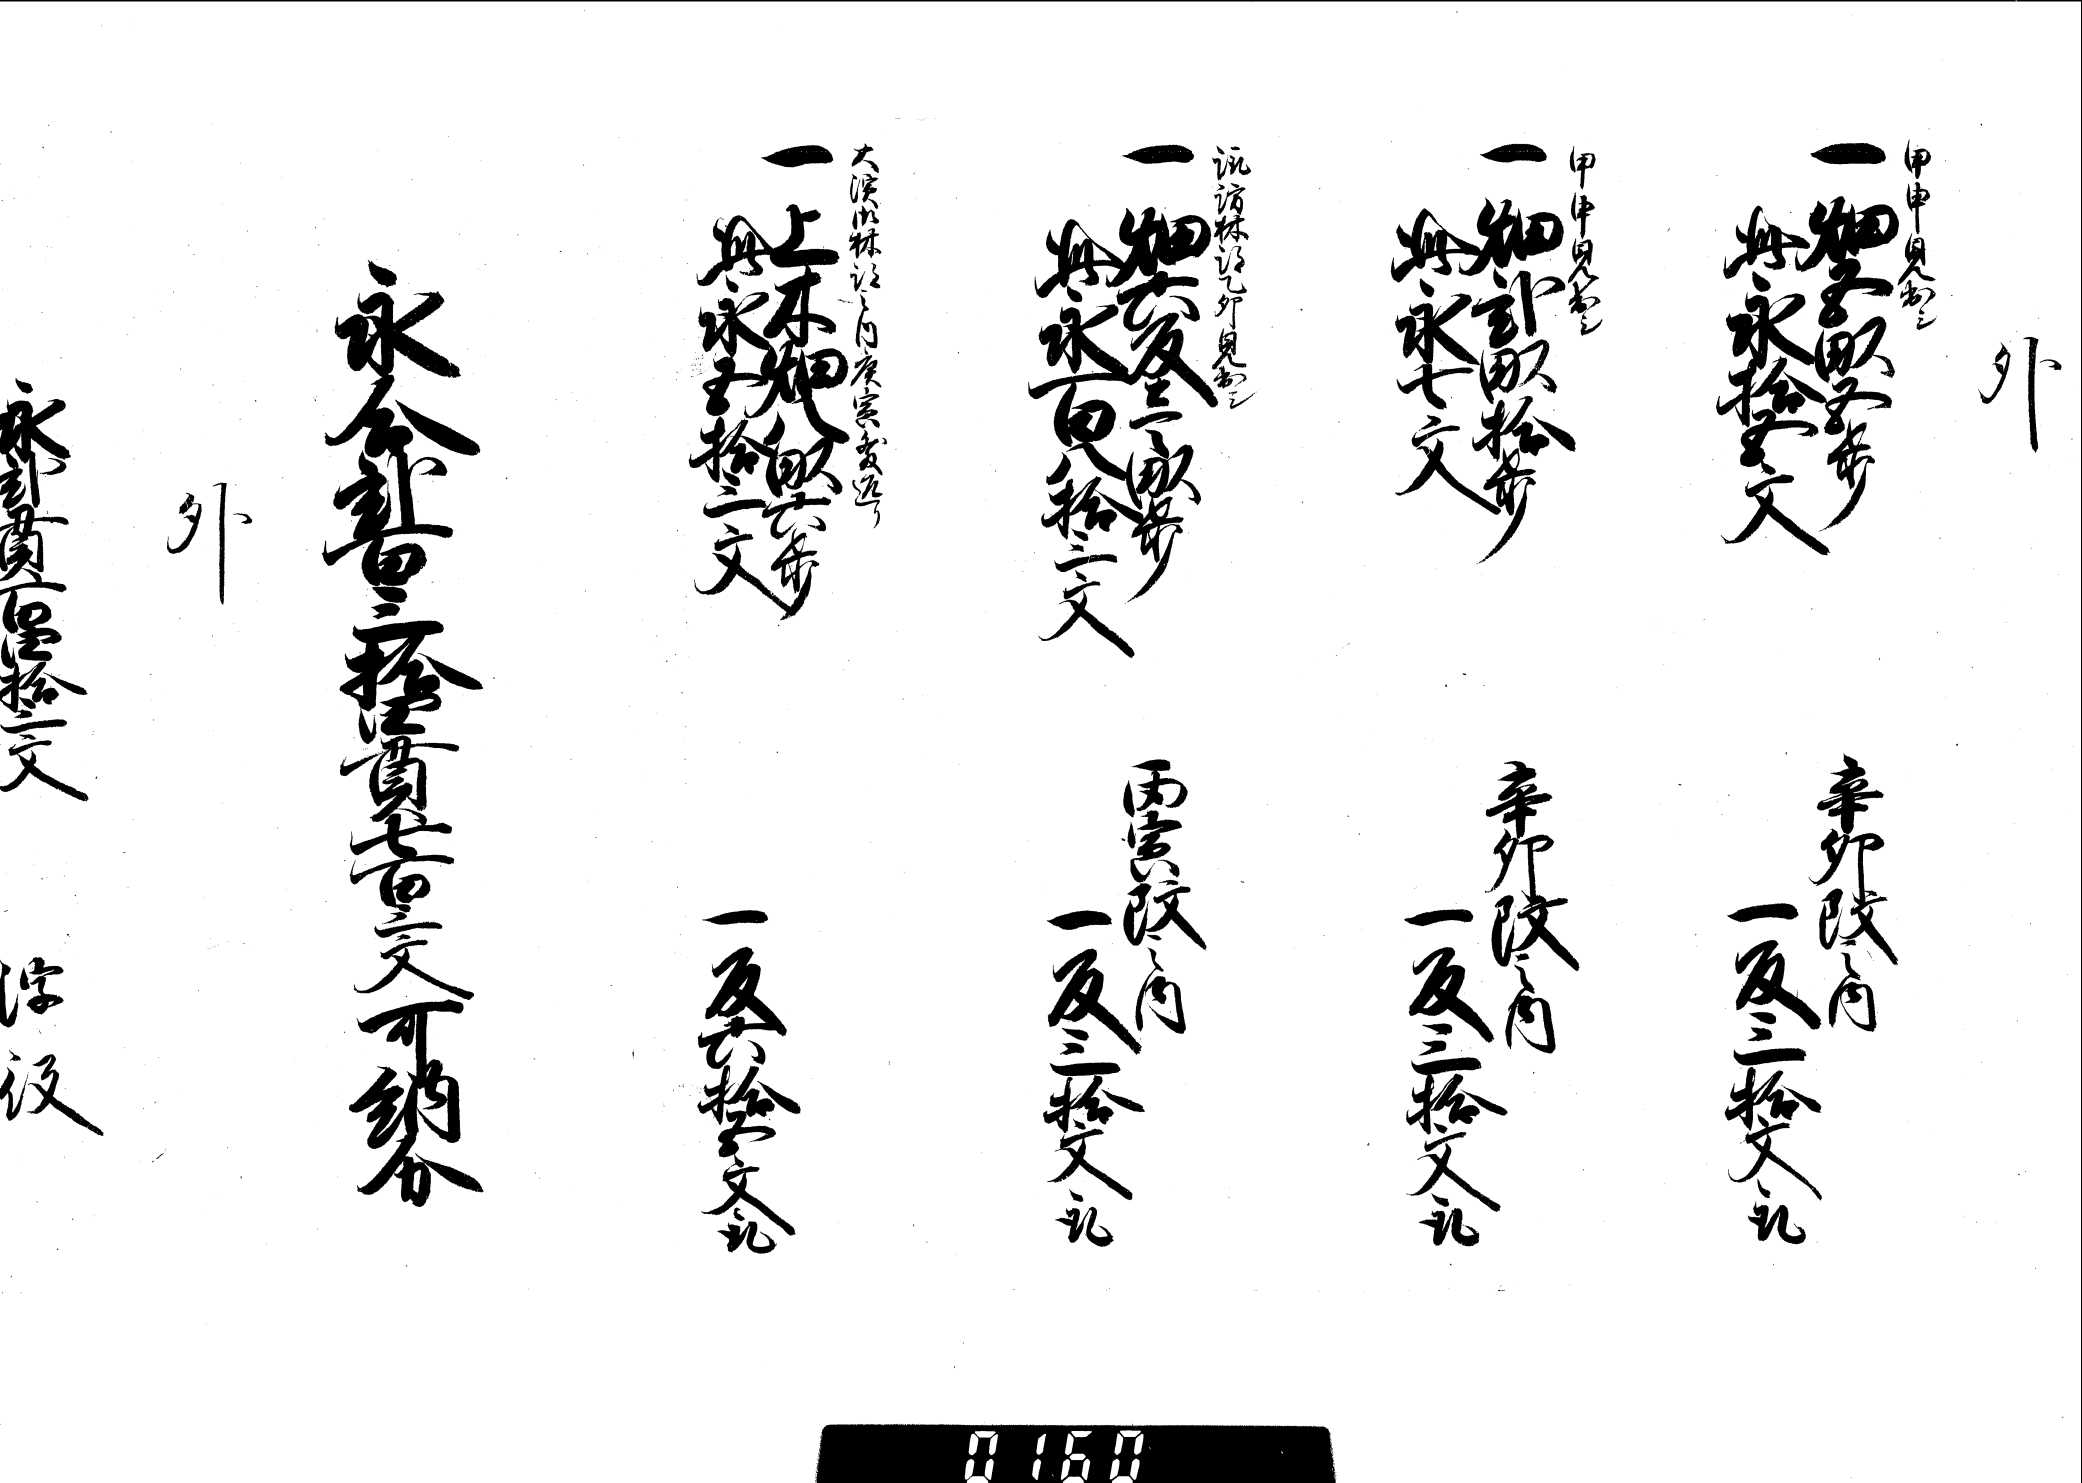 外
甲申見出シ
一 畑五畝五歩
此永拾五文
辛卯改之内
一反三拾文取
甲申見出シ
一 畑弐畝拾歩
此永七文
辛卯改之内
一反三拾文取
諏訪林跡乙卯見出シ
一 畑六反壱畝歩
此永百八拾三文
丙寅改之内
一反三拾文取
大濱御林跡之内庚寅
一 上木畑八畝六歩
此永五拾三文
一反六拾五文取
永合弐百三拾四貫七百三文可納分
外
永弐貫百四拾三文 浮役
0160